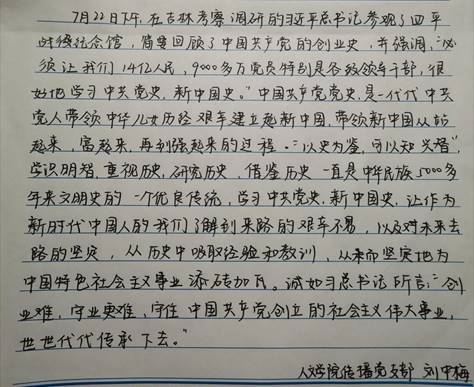 7月22日下午，在吉林考察调研的习近平总书记参观了四平
战役纪念馆，简要回顾了中国共产党的创业史，并强调，“必
须让我们14亿人民，9000多万党员特别是各级领导干部，很
好地学习中共党史，新中国史。”中国共产党党史，是一代代中共
党人带领中华儿女历经艰辛建立起新中国，带领新中国从站
起来，富起来，再到强起来的过程。“以史为鉴，可以知兴替”，
学识明智，重视历史，研究历史，借鉴历史一直是中华民族5000多
年来文明史的一个优良传统，学习中共党史，新中国史，让作为
新时代中国人的我们了解到来路的艰辛不易，以及对未来去
路的坚定，从历史中吸取经验和教训，从而坚定地为
中国特色社会主义事业添砖加瓦。诚如习总书记所言：“创
业难，守业更难，守住中国共产党创立的社会主义伟大事业，
世世代代传承下去。”
人文学院传播党支部 刘中梅